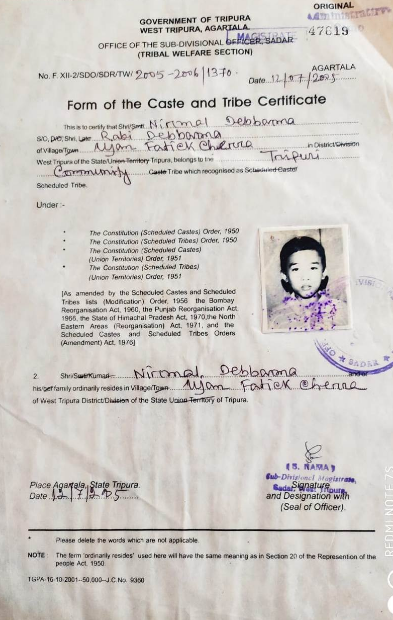 ORIGINAL
GOVERNMENT OF TRIPURA
WEST TRIPURA, AGARTALA.
MAGISTRATE
47619
OFFICE OF THE SUB-DIVISIONAL OFFICER, SADAR
(TRIBAL WELFARE SECTION)
AGARTALA
No. F. XII-2/SDO/SDR/TW/ 2005-2006/1370.
Date 12/07/2005
Form of the Caste and Tribe Certificate
This is to certify that Shri/Smt. Nirmal Debbarma
S/O, D/O, Shri, Late Rabi Debbarma
of Village/Town Ujan Fatick Cherra in District/Division
West Tripura of the State/Union Territory Tripura, belongs to the Tripuri
Community Caste Tribe which recognised as Scheduled Caste/
Scheduled Tribe.
Under :-
* The Constitution (Scheduled Castes) Order, 1950
* The Constitution (Scheduled Tribes) Order, 1950
* The Constitution (Scheduled Castes)
(Union Territories) Order, 1951
* The Constitution (Scheduled Tribes)
(Union Territories) Order, 1951
[As amended by the Scheduled Castes and Scheduled
Tribes lists (Modification) Order, 1956 the Bombay
Reorganisation Act, 1960, the Punjab Reorganisation Act
1966, the State of Himachal Pradesh Act, 1970,the North
Eastern Areas (Reorganisation) Act, 1971, and the
Scheduled Castes and Scheduled Tribes Orders
(Amendment) Act, 1976]
SADAR
2. Shri/Smt/Kumari Nirmal Debbarma and/or
his/her family ordinarily resides in Village/Town Ujan Fatick Cherra
of West Tripura District/Division of the State Union Territory of Tripura.
Place Agartala, State Tripura.
Date 12/7/205
Sub-Divisional Magistrate,
Sadar, West Tripura.
Signature
and Designation with
(Seal of Officer).
* Please delete the words which are not applicable.
NOTE : The term 'ordinarily resides' used here will have the same meaning as in Section 20 of the Represention of the
people Act. 1950
TGPA-16-10-2001--50,000--J.C.No. 9360
REDMI NOTE 7S